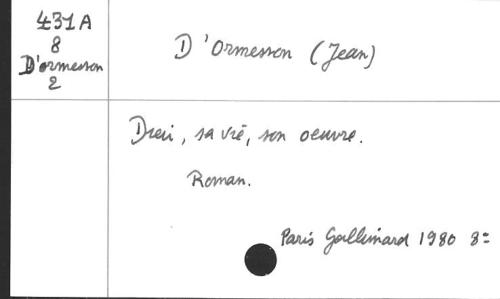 431 A
8
D'ormesson
2
D'Ormesson (Jean)
Dieu, sa vie, son oeuvre.
Roman.
Paris Gallimard 1980 8=